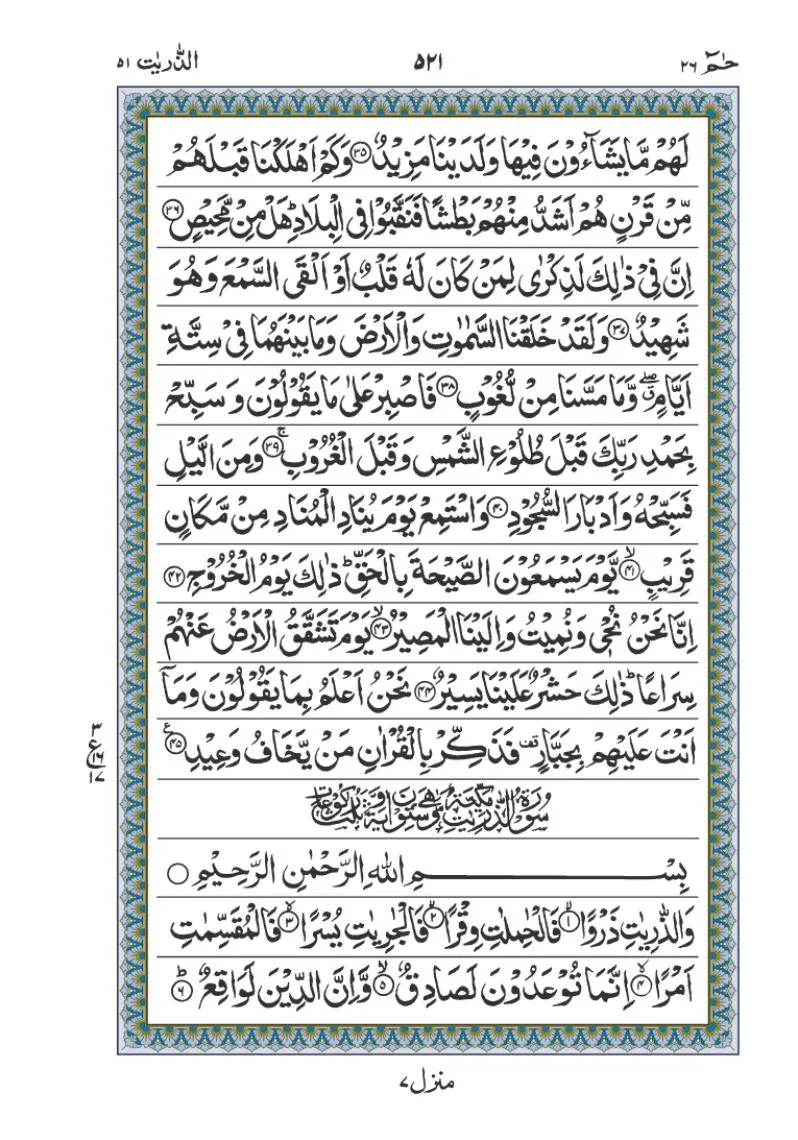 الذّٰریٰت ۵۱ ۵۲۱ حٰمٓ ۲۶
لَهُمْ مَّا یَشَآءُوْنَ فِیْهَا وَلَدَیْنَا مَزِیْدٌ ﴿۳۵﴾ وَكَمْ اَهْلَكْنَا قَبْلَهُمْ
مِّنْ قَرْنٍ هُمْ اَشَدُّ مِنْهُمْ بَطْشًا فَنَقَّبُوْا فِی الْبِلَادِ ؕ هَلْ مِنْ مَّحِیْصٍ ﴿۳۶﴾
اِنَّ فِیْ ذٰلِكَ لَذِكْرٰی لِمَنْ كَانَ لَهٗ قَلْبٌ اَوْ اَلْقَی السَّمْعَ وَهُوَ
شَهِیْدٌ ﴿۳۷﴾ وَلَقَدْ خَلَقْنَا السَّمٰوٰتِ وَالْاَرْضَ وَمَا بَیْنَهُمَا فِیْ سِتَّةِ
اَیَّامٍ ۖۗ وَّمَا مَسَّنَا مِنْ لُّغُوْبٍ ﴿۳۸﴾ فَاصْبِرْ عَلٰی مَا یَقُوْلُوْنَ وَسَبِّحْ
بِحَمْدِ رَبِّكَ قَبْلَ طُلُوْعِ الشَّمْسِ وَقَبْلَ الْغُرُوْبِ ۚ﴿۳۹﴾ وَمِنَ الَّیْلِ
فَسَبِّحْهُ وَاَدْبَارَ السُّجُوْدِ ﴿۴۰﴾ وَاسْتَمِعْ یَوْمَ یُنَادِ الْمُنَادِ مِنْ مَّكَانٍ
قَرِیْبٍ ۙ﴿۴۱﴾ یَّوْمَ یَسْمَعُوْنَ الصَّیْحَةَ بِالْحَقِّ ؕ ذٰلِكَ یَوْمُ الْخُرُوْجِ ﴿۴۲﴾
اِنَّا نَحْنُ نُحْیٖ وَنُمِیْتُ وَاِلَیْنَا الْمَصِیْرُ ۙ﴿۴۳﴾ یَوْمَ تَشَقَّقُ الْاَرْضُ عَنْهُمْ
سِرَاعًا ؕ ذٰلِكَ حَشْرٌ عَلَیْنَا یَسِیْرٌ ﴿۴۴﴾ نَحْنُ اَعْلَمُ بِمَا یَقُوْلُوْنَ وَمَاۤ
اَنْتَ عَلَیْهِمْ بِجَبَّارٍ ۫ فَذَكِّرْ بِالْقُرْاٰنِ مَنْ یَّخَافُ وَعِیْدِ ﴿۴۵﴾
۳
ع ۱۶
۱۷
سُوْرَةُ الذّٰرِیٰتِ مَكِّیَّةٌ وَّهِیَ سِتُّوْنَ اٰیَةً وَّثَلٰثُ رُكُوْعَاتٍ
بِسْمِ اللّٰهِ الرَّحْمٰنِ الرَّحِیْمِ
وَالذّٰرِیٰتِ ذَرْوًا ۙ﴿۱﴾ فَالْحٰمِلٰتِ وِقْرًا ۙ﴿۲﴾ فَالْجٰرِیٰتِ یُسْرًا ۙ﴿۳﴾ فَالْمُقَسِّمٰتِ
اَمْرًا ۙ﴿۴﴾ اِنَّمَا تُوْعَدُوْنَ لَصَادِقٌ ۙ﴿۵﴾ وَّاِنَّ الدِّیْنَ لَوَاقِعٌ ؕ﴿۶﴾
منزل ۷